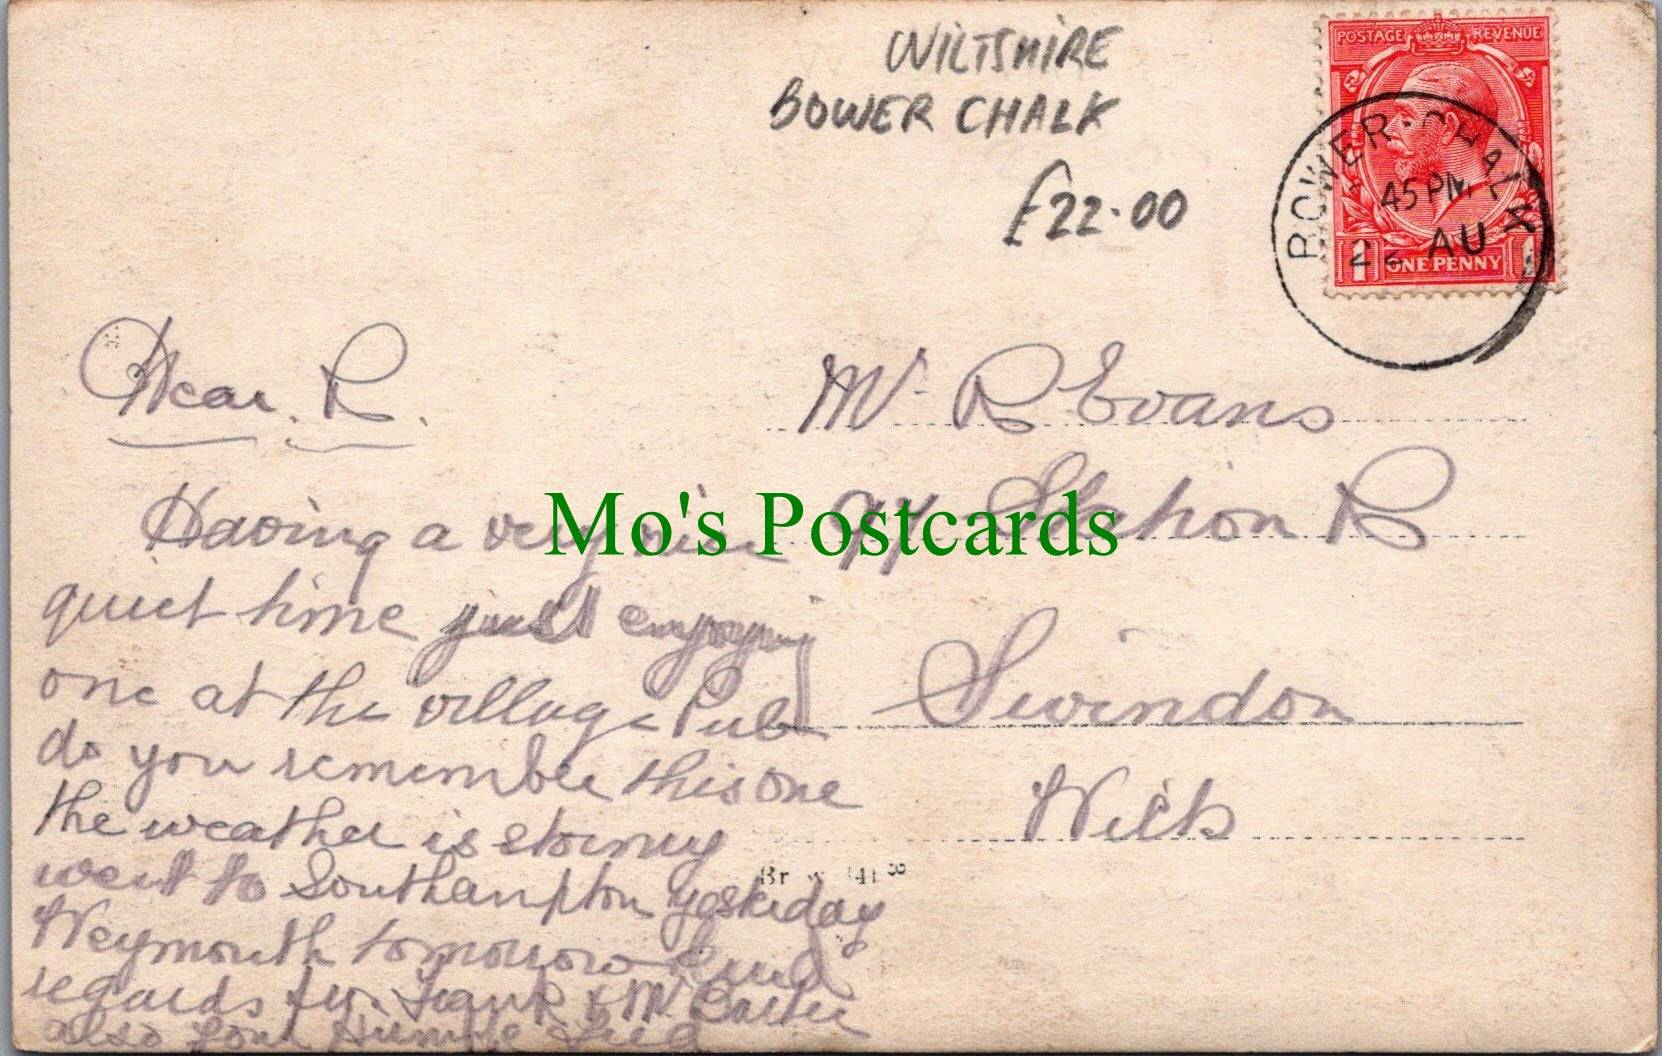 WILTSHIRE
BOWER CHALK
£22.00
POSTAGE REVENUE
BOWER·CHALK
45 PM
22 AU
1 ONE PENNY 1
Dear. R.
Having a very nice
quiet time just enjoying
one at the village Pub
do you remember this one
the weather is stormy
went to Southampton yesterday
Weymouth tomorrow kind
regards Frank & Mr
also
Mr R Evans
Station R
Swindon
Wilts
Mo's Postcards